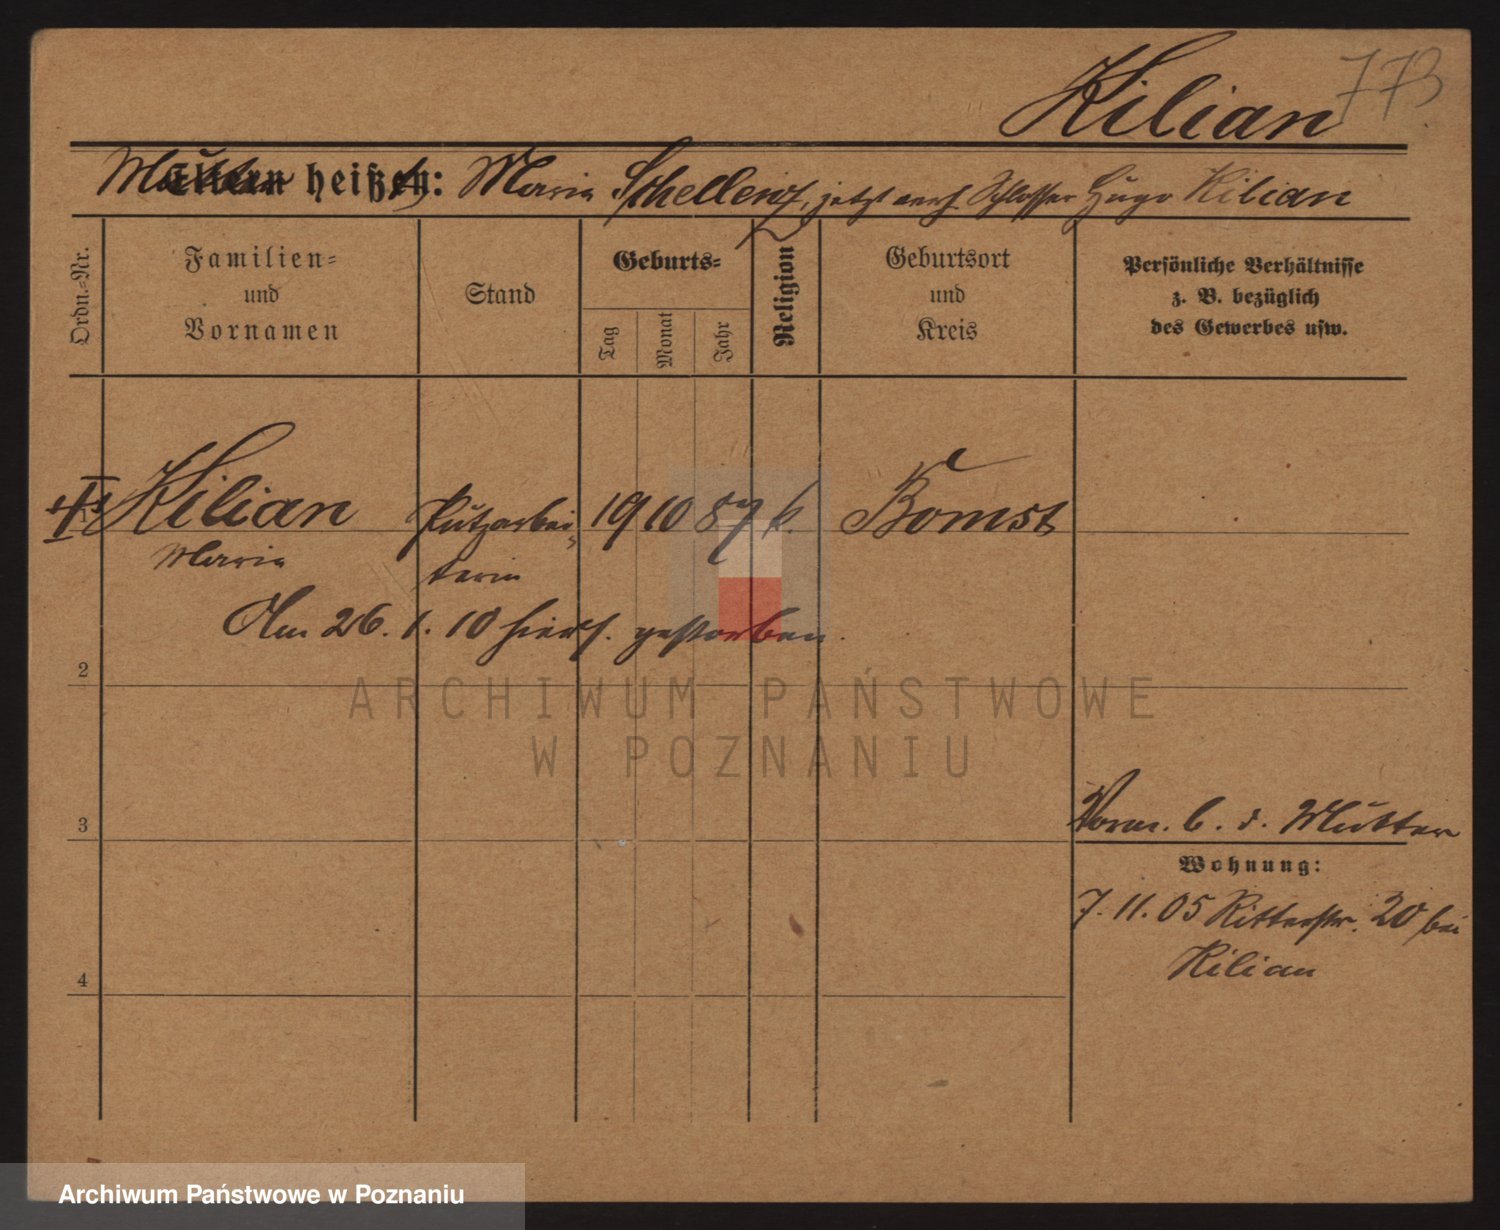 Kilian 773
Mutter heißt: Maria Schellenz, jetzt verh. Schlosser Hugo Kilian
Ordn.=Nr.
Familien=
und
Vornamen
Stand
Geburts=
Tag
Monat
Jahr
Religion
Geburtsort
und
Kreis
Persönliche Verhältnisse
z. B. bezüglich
des Gewerbes usw.
1 Kilian Putzarbei= 19 10 87 k. Bomst
Maria terin
Am 26. 1. 10 hiers. gestorben.
2
ARCHIWUM PAŃSTWOWE
W POZNANIU
Vorm. b. d. Mutter
3
Wohnung:
7. 11. 05 Ritterstr. 20 bei
Kilian
4
Archiwum Państwowe w Poznaniu